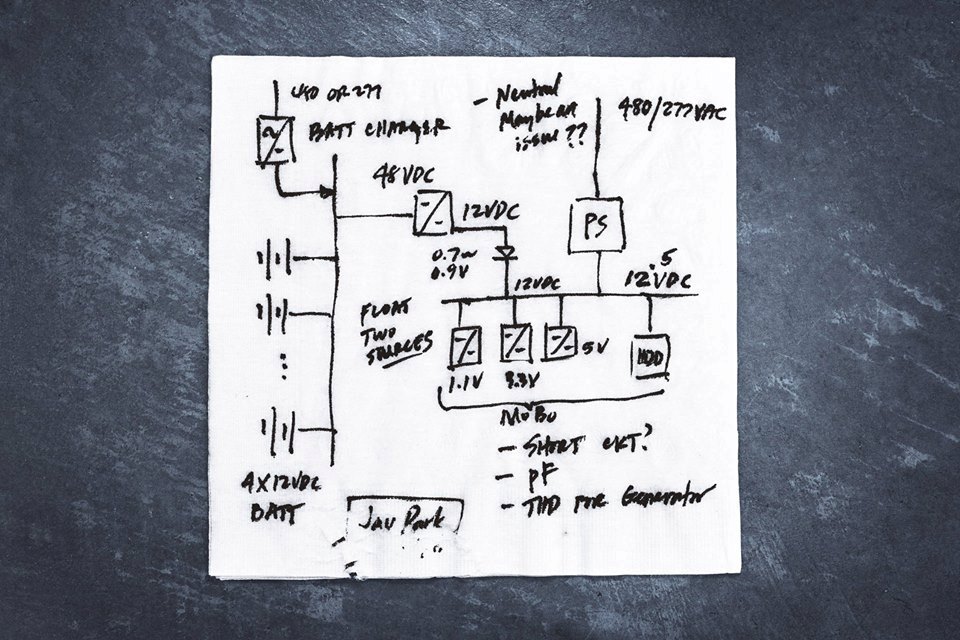 480 OR 277
BATT CHARGER
- Neutral
Maybe an
issue??
480/277VAC
48VDC
12VDC
PS
0.7~
0.9V
12VDC
12.5
VDC
FLOAT
TWO
SOURCES
1.1V
3.3V
5V
HDD
MoBo
- SHORT CKT?
- PF
- THD FOR Generator
4X12VDC
BATT
Jay Park